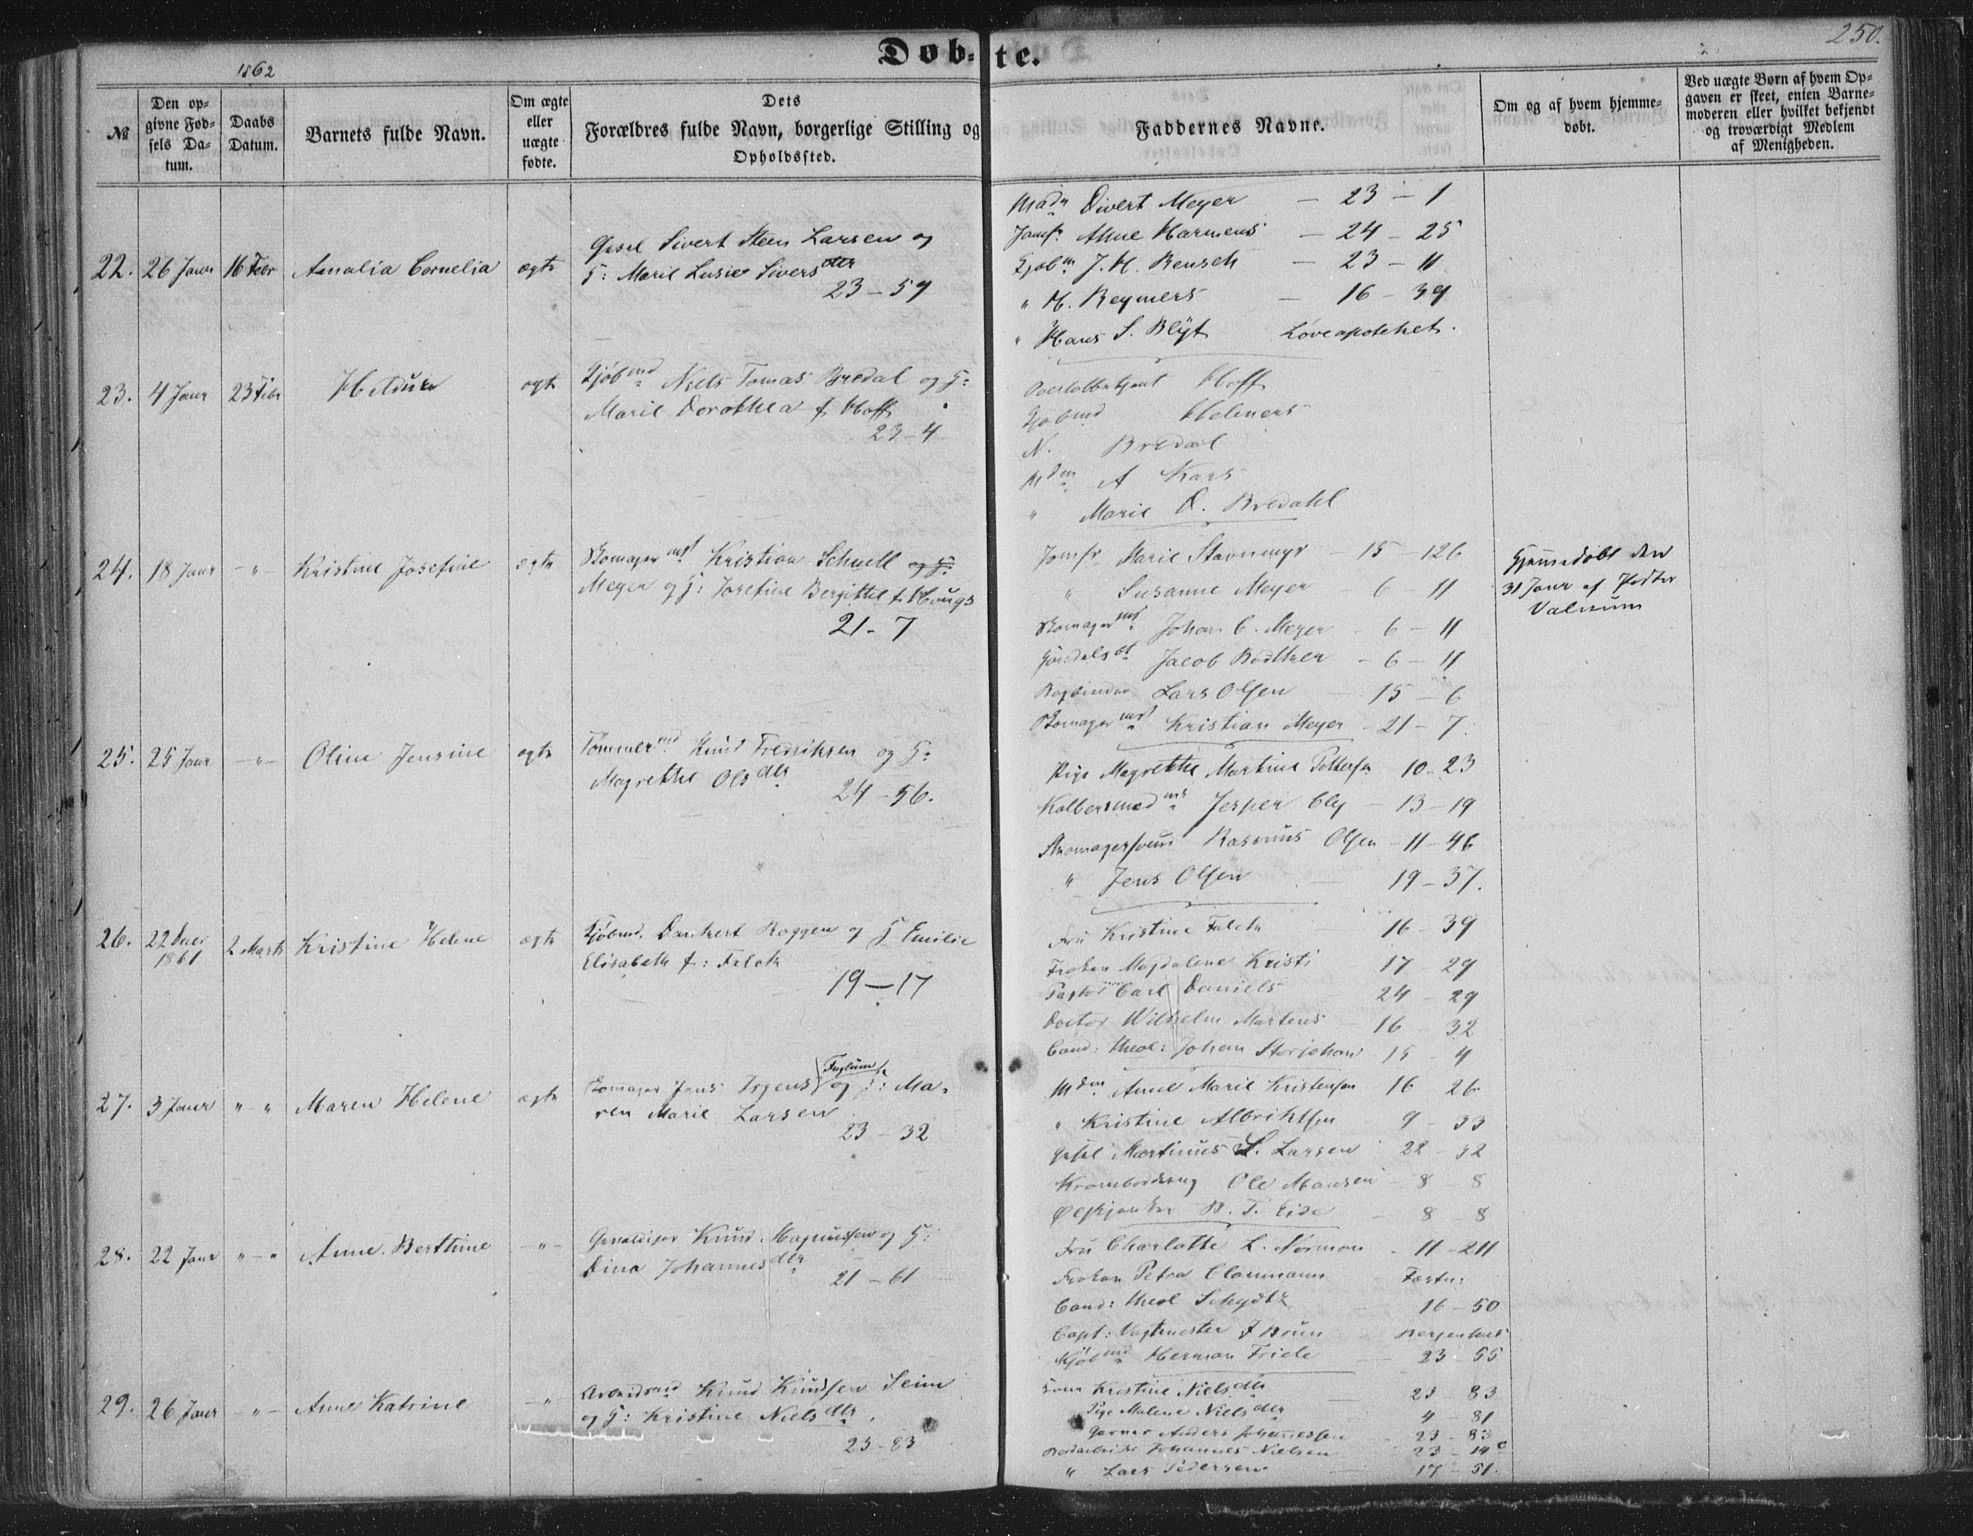 Døb-te.
250.
1862
№
Den op-
givne Fød-
sels Da-
tum.
Daabs
Datum.
Barnets fulde Navn.
Om ægte
eller
uægte
fødte.
Dets
Forældres fulde Navn, borgerlige Stilling og
Opholdssted.
Faddernes Navne.
Om og af hvem hjemme-
døbt.
Ved uægte Børn af hvem Op-
gaven er skeet, enten Barne-
moderen eller hvilket bekjendt
og troværdigt Medlem
af Menigheden.
22. 26 Janr 16 Febr Amalia Cornelia ægte
Gesel Sivert Steen Larsen og
G: Marie Lusie Siversdtr
23 - 59
Madm Divert Meyer - 23 - 1
Jomfr. Anne Harmens - 24 - 25
Kjøbm J. H. Reusch - 23 - 11
" H. Reymers - 16 - 39
" Hans S. Blyt Løveapotheket.
23. 4 Janr 23 Febr ægte
Kjøbmd Niels Tomas Bredal og G:
Marie Dorothea f. Hoff
23 - 4
Hoff
Kjøbmd Helmers
N. Bredal
Mdm A Kars
" Marie D. Bredahl
24. 18 Janr - " - Kristine Josefine ægte
Skomagermst Kristian Schnell og G:
Meyer og G: Josefine Bergitte f. Hougs
21 - 7
Jomfr Marie Stavnmyr - 15 - 126
" Susanne Meyer - 6 - 11
Skomagermst Johan C. Meyer - 6 - 11
Jacob Bødtker - 6 - 11
Bogbinder Lars Olsen 15 - 6
Skomagermst Kristian Meyer - 21 - 7.
Hjemmedøbt den
31 Janr af Pedter
Valnum
25. 25 Janr - " - Oline Jensine ægte
Tømmermd Knud Fredriksen og G:
Magrethe Olsdtr
24 - 56.
Pige Magrethe Martine Pettersen 10 - 23
Kobbersmedms Jesper Cly - 13 - 19
Skomagersvend Rasmus Olsen - 11 - 46
" Jens Olsen 19 - 37.
26. 22 Decr
1861 2 Marts Kristine Helene ægte
Kjøbmd. Dankert Roggen og G Emilie
Elisabeth f: Falck
19 - 17
Fru Kristine Falck 16 - 39
Frøken Magdalene Kristi 17 - 29
Pastor Carl Daniels 24 - 29
Doctor Wilhelm Martens - 16 - 32
Cand: theol: Johan Storjohan 15 - 4
27. 3 Janr " - " Maren Helene ægte
Skomager Jens Irgens og G: Ma-
ren Marie Larsen
23 - 32
Mdm Anne Marie Kristensen 16 26
" Kristine Albrihtsen 9 - 33
Gesel Martinus S. Larsen 22 - 32
Ole Monsen - 8 - 8
B. T. Eide - 8 - 8
28. 22 Janr " - " Anne Berthine - " -
Knud Magnussen og G:
Dina Johannesdtr
21 - 61
Fru Charlotte L. Norman - 11 - 211
Frøken Petra Clausmann Fæstn:
Cand: theol Schydtz 16 - 50
Capt: Vagtmester F Bruun Bergenhus
Kjøbmd Herman Friele 23 - 55
29. 26 Janr - " - Anne Katrine - "
Arbeidsmd Knud Knudsen Seim
og G: Kristine Nielsdtr.
23 - 83
Kone Kristine Nielsdtr 23 - 83
Pige Malene Nielsdtr 4 - 81
Garver Anders Johannessen 23 - 83
Johannes Nielsen 23 - 14 c
" Lars Pedersen 17 - 51.